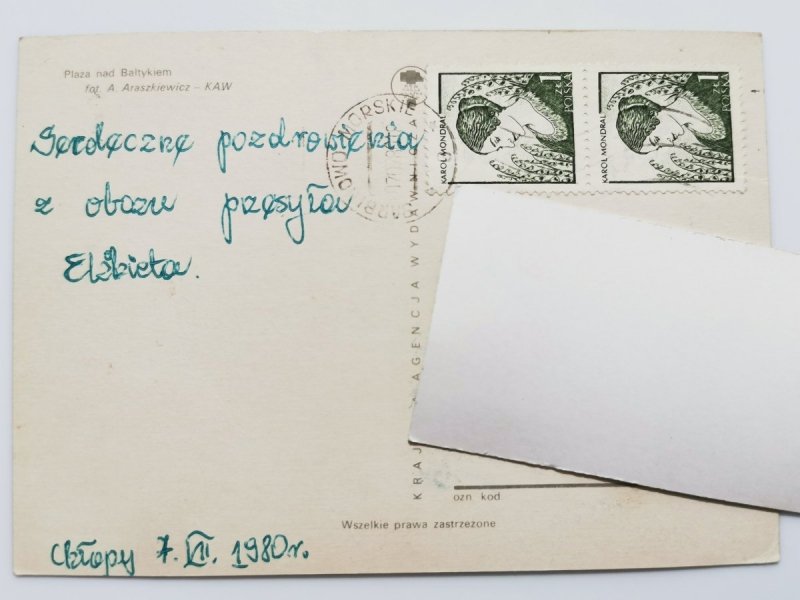 Plaża nad Bałtykiem
fot. A. Araszkiewicz – KAW
Serdeczne pozdrowienia
z obozu przesyła
Elżbieta.
Chłopy 7.VII. 1980r.
KAROL MONDRAL
1
POLSKA
KAROL MONDRAL
1
POLSKA
MORSKIE
KRAJ AGENCJA WYDAWNICZA
ozn. kod
Wszelkie prawa zastrzeżone